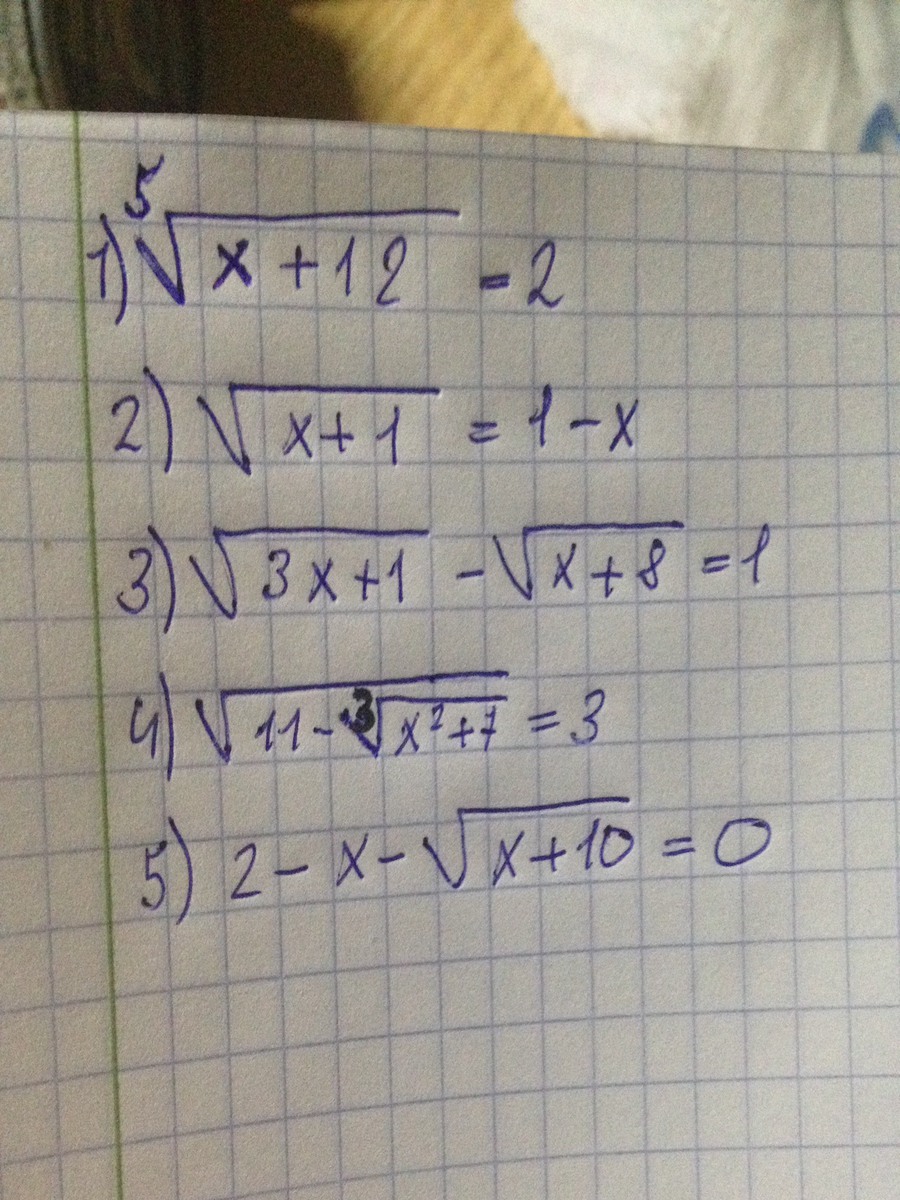 1) ⁵√(x+12) = 2
2) √(x+1) = 1-x
3) √(3x+1) - √(x+8) = 1
4) √(11-³√(x²+7)) = 3
5) 2-x-√(x+10) = 0